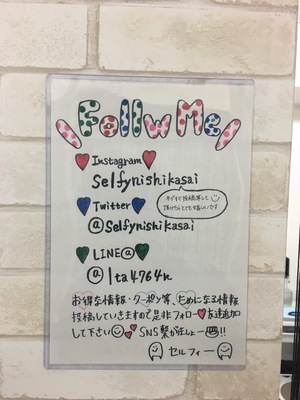 Follw Me
Instagram
selfynishikasai
頂けたらとても嬉しいです
Twitter
@selfynishikasai
LINE@
@lta4764n
お得な情報・クーポン等、ためになる情報
投稿していきますので是非フォロー友達追加
して下さい SNS繋がりましょー!!
セルフィー